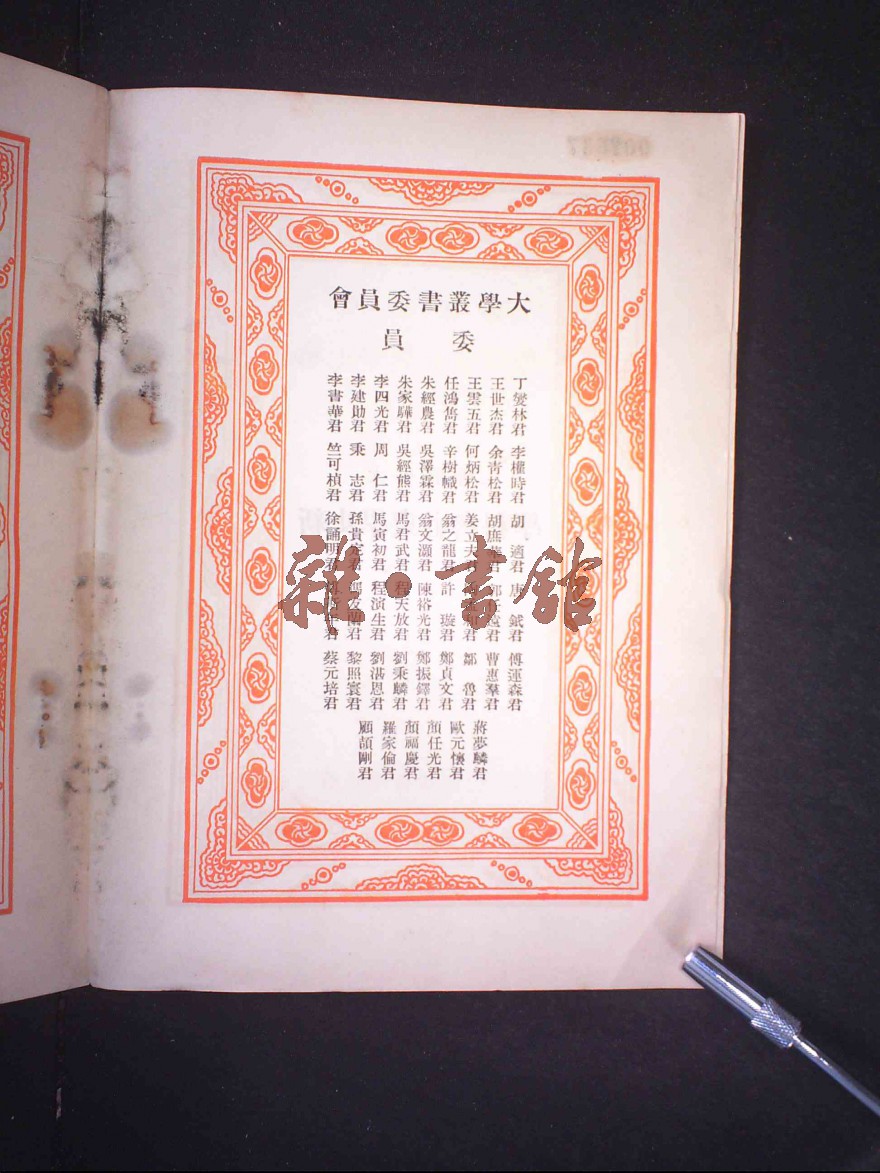 大學叢書委員會
委員
丁燮林君
王世杰君
王雲五君
任鴻雋君
朱經農君
朱家驊君
李四光君
李建勛君
李書華君
李權時君
余青松君
何炳松君
辛樹幟君
吳澤霖君
吳經熊君
周仁君
秉志君
竺可楨君
胡適君
胡庶華君
姜立夫君
翁之龍君
翁文灝君
馬君武君
馬寅初君
孫貴定君
徐誦明君
唐鉞君
郭任遠君
許璇君
陳裕光君
程天放君
程演生君
馮友蘭君
傅運森君
曹惠羣君
鄒魯君
鄭貞文君
鄭振鐸君
劉秉麟君
劉湛恩君
黎照寰君
蔡元培君
蔣夢麟君
歐元懷君
顏任光君
顏福慶君
羅家倫君
顧頡剛君
雜·書館